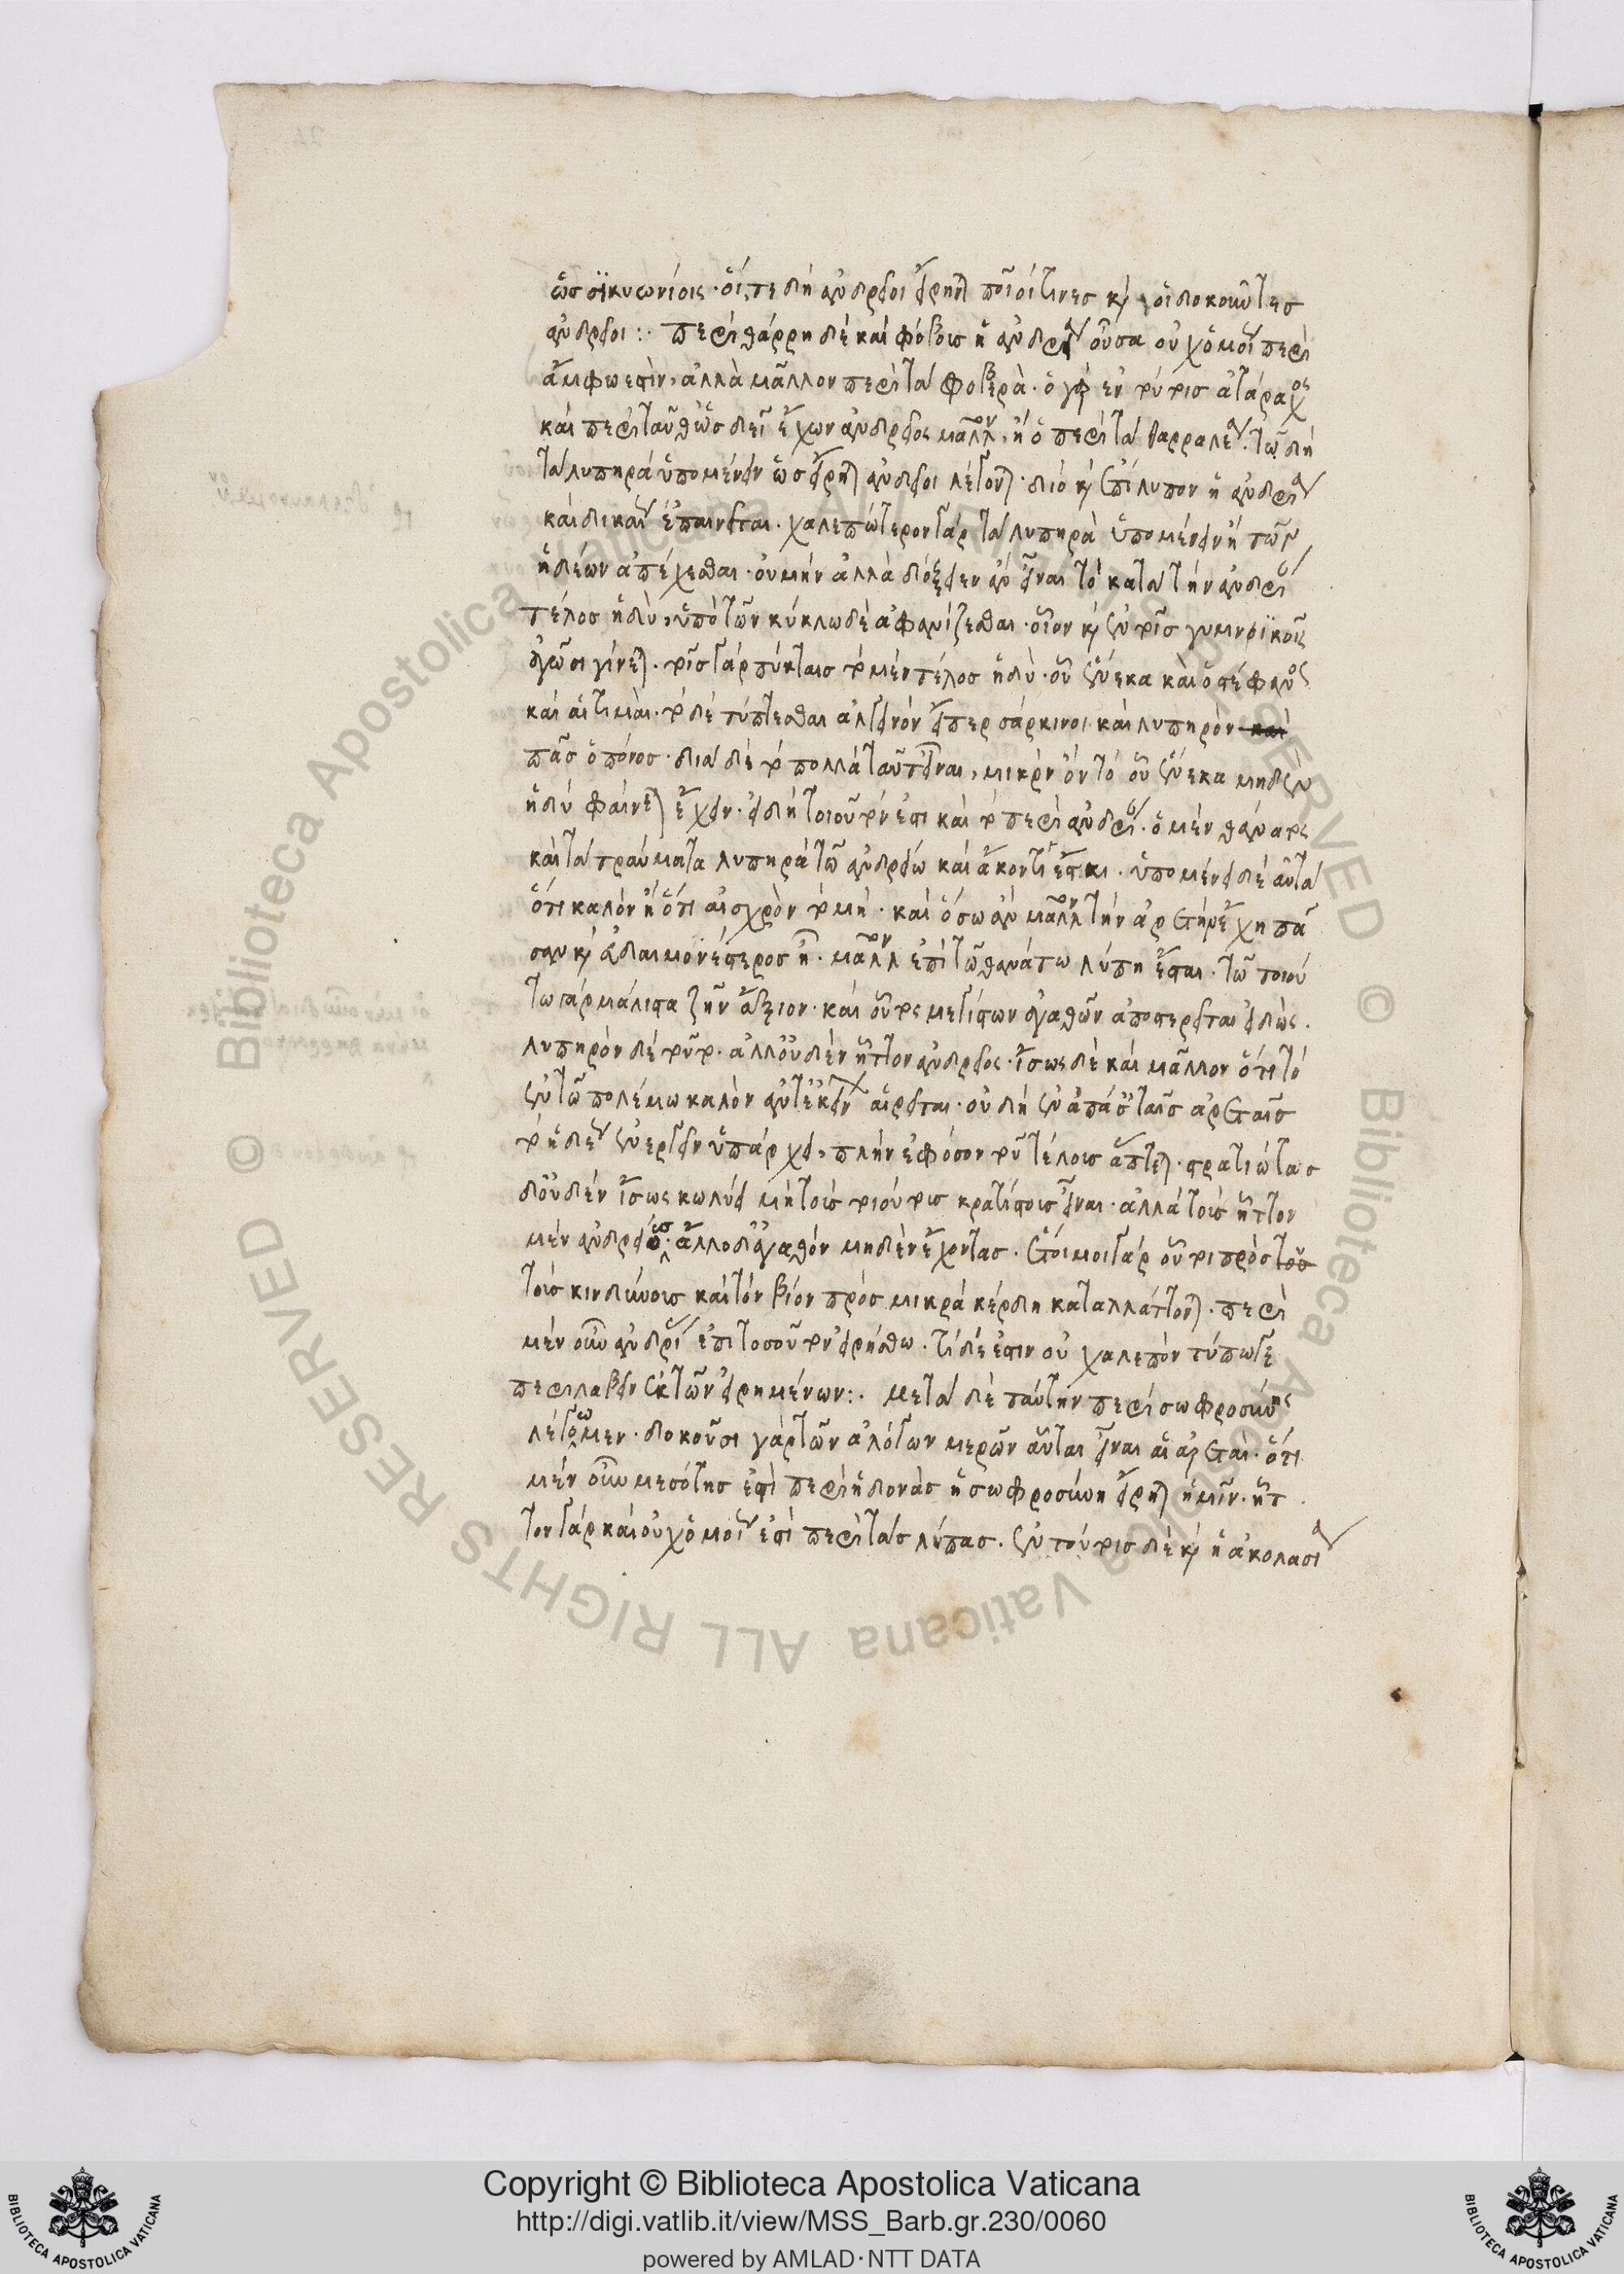 ὡσ σϊκυωνίοις· οἵ, τε δὴ ἀνδρεῖοι εἴρηνται ποῖοί τινεσ καὶ οἱ δοκοῦντεσ
ἀνδρεῖοι :· περὶ θάρρη δὲ καὶ φόβουσ ἡ ἀνδρεία οὖσα οὐχ ὁμοίως περὶ
ἄμφω ἐστὶν, ἀλλὰ μᾶλλον περὶ τὰ φοβερά· ὁ γὰρ ἐν τούτοισ ἀτάραχος
καὶ περὶ ταῦθ' ὡσ δεῖ ἔχων ἀνδρεῖος μᾶλλον, ἢ ὁ περὶ τὰ θαρραλέα· τῶ δὴ
τὰ λυπηρὰ ὑπομένειν ὡσ εἴρηται ἀνδρεῖοι λέγονται· διὸ καὶ ἐπίλυπον ἡ ἀνδρεία
καὶ δικαίως ἐπαινεῖται. χαλεπώτερον γὰρ τὰ λυπηρὰ ὑπομένειν ἢ τῶν
ἡδέων ἀπέχεσθαι· οὐ μὴν ἀλλὰ δόξειεν ἂν εἶναι τὸ κατὰ τὴν ἀνδρείαν
τέλοσ ἡδὺ, ὑπὸ τῶν κύκλω δὲ ἀφανίζεσθαι· οἷον καὶ ἐν τοῖσ γυμνικοῖς
ἀγῶσι γίνεται. τοῖσ γὰρ πύκταισ τὸ μὲν τέλοσ ἡδὺ· οὗ ἕνεκα καὶ ὁ στέφανος
καὶ αἱ τιμαὶ. τὸ δὲ τύπτεσθαι ἀλγεινὸν εἴπερ σάρκινοι καὶ λυπηρὸν καὶ
πᾶσ ὁ πόνοσ· διὰ δὲ τὸ πολλὰ ταῦτ' εἶναι, μικρὸν ὂν τὸ οὗ ἕνεκα μηδὲν
ἡδὺ φαίνεται ἔχειν· εἰ δὴ τοιοῦτον ἐστι καὶ τὸ περὶ ἀνδρείαν. ὁ μὲν θάνατος
καὶ τὰ τραύματα λυπηρὰ τῶ ἀνδρείω καὶ ἄκοντι ἔσται. ὑπομένει δὲ αὐτὰ
ὅτι καλὸν ἢ ὅτι αἰσχρὸν τὸ μὴ· καὶ ὅσω ἂν μᾶλλον τὴν ἀρετὴν ἔχη πᾶ
σαν καὶ εὐδαιμονέστεροσ ἦ· μᾶλλον ἐπὶ τῶ θανάτω λύπη ἔσται. τῶ τοιού
τω γὰρ μάλιστα ζῆν ἄξιον· καὶ οὗτος μεγίστων ἀγαθῶν ἀποστερεῖται εἰδώς.
λυπηρὸν δὲ τοῦτο. ἀλλ' οὐδὲν ἧττον ἀνδρεῖος· ἴσως δὲ καὶ μᾶλλον ὅτι τὸ
ἐν τῶ πολέμω καλὸν ἀντ' ἐκείνων αἱρεῖται· οὐ δὴ ἐν ἁπάσαις ταῖσ ἀρεταῖσ
τὸ ἡδέως ἐνεργεῖν ὑπάρχει, πλὴν ἐφόσον τοῦ τέλουσ ἅπτεται· στρατιώτασ
δ' οὐδὲν ἴσως κωλύει μὴ τοὺσ τοιούτουσ κρατίστουσ εἶναι· ἀλλὰ τοὺσ ἧττον
μὲν ἀνδρείουσ· ἄλλο δ' ἀγαθὸν μηδὲν ἔχοντασ. ἕτοιμοι γὰρ οὗτοι πρὸσ τοὺσ
τοὺσ κινδύνουσ καὶ τὸν βίον πρὸσ μικρὰ κέρδη καταλλάττονται. περὶ
μὲν οὖν ἀνδρείας ἐπὶ τοσοῦτον εἰρήσθω. τί δέ ἐστιν οὐ χαλεπὸν τύπω γε
περιλαβεῖν ἐκ τῶν εἰρημένων :· μετὰ δὲ ταύτην περὶ σωφροσύνης
λέγωμεν. δοκοῦσι γὰρ τῶν ἀλόγων μερῶν αὗται εἶναι αἱ ἀρεταὶ. ὅτι
μὲν οὖν μεσότησ ἐστὶ περὶ ἡδονὰσ ἡ σωφροσύνη εἴρηται ἡμῖν. ἧτ
τον γὰρ καὶ οὐχ ὁμοίως ἐστὶ περὶ τὰσ λύπασ. ἐν τούτοισ δὲ καὶ ἡ ἀκολασία
Copyright © Biblioteca Apostolica Vaticana
http://digi.vatlib.it/view/MSS_Barb.gr.230/0060
powered by AMLAD·NTT DATA
BIBLIOTECA APOSTOLICA VATICANA
BIBLIOTECA APOSTOLICA VATICANA
© Biblioteca Apostolica Vaticana ALL RIGHTS RESERVED
© Biblioteca Apostolica Vaticana ALL RIGHTS RESERVED